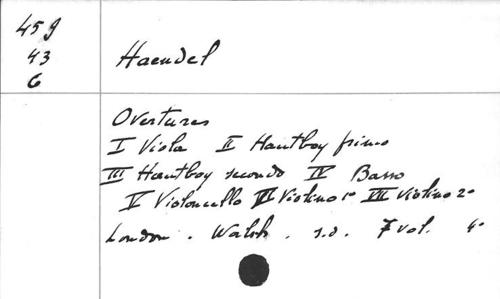 459
43
6
Haendel
Overtures
I Viola II Hautboy primo
III Hautboy secondo IV Basso
V Violoncello VI Violino 1º VII Violino 2º
London. Walsh. s.d. 7 vol. 4º